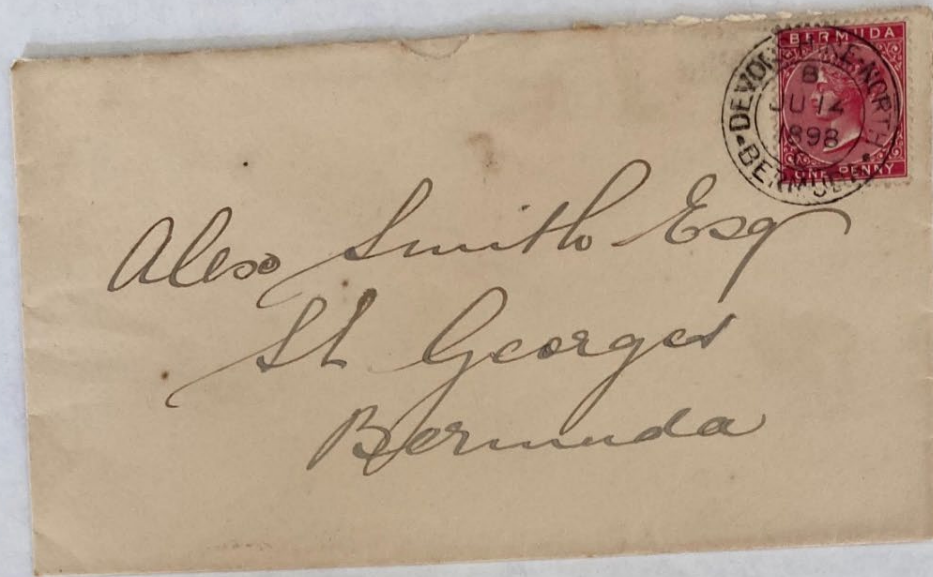 BERMUDA
ONE PENNY
DEVONSHIRE·NORTH
B
JU 12
1898
BERMUDA
Alexr Smith Esq
St Georges
Bermuda